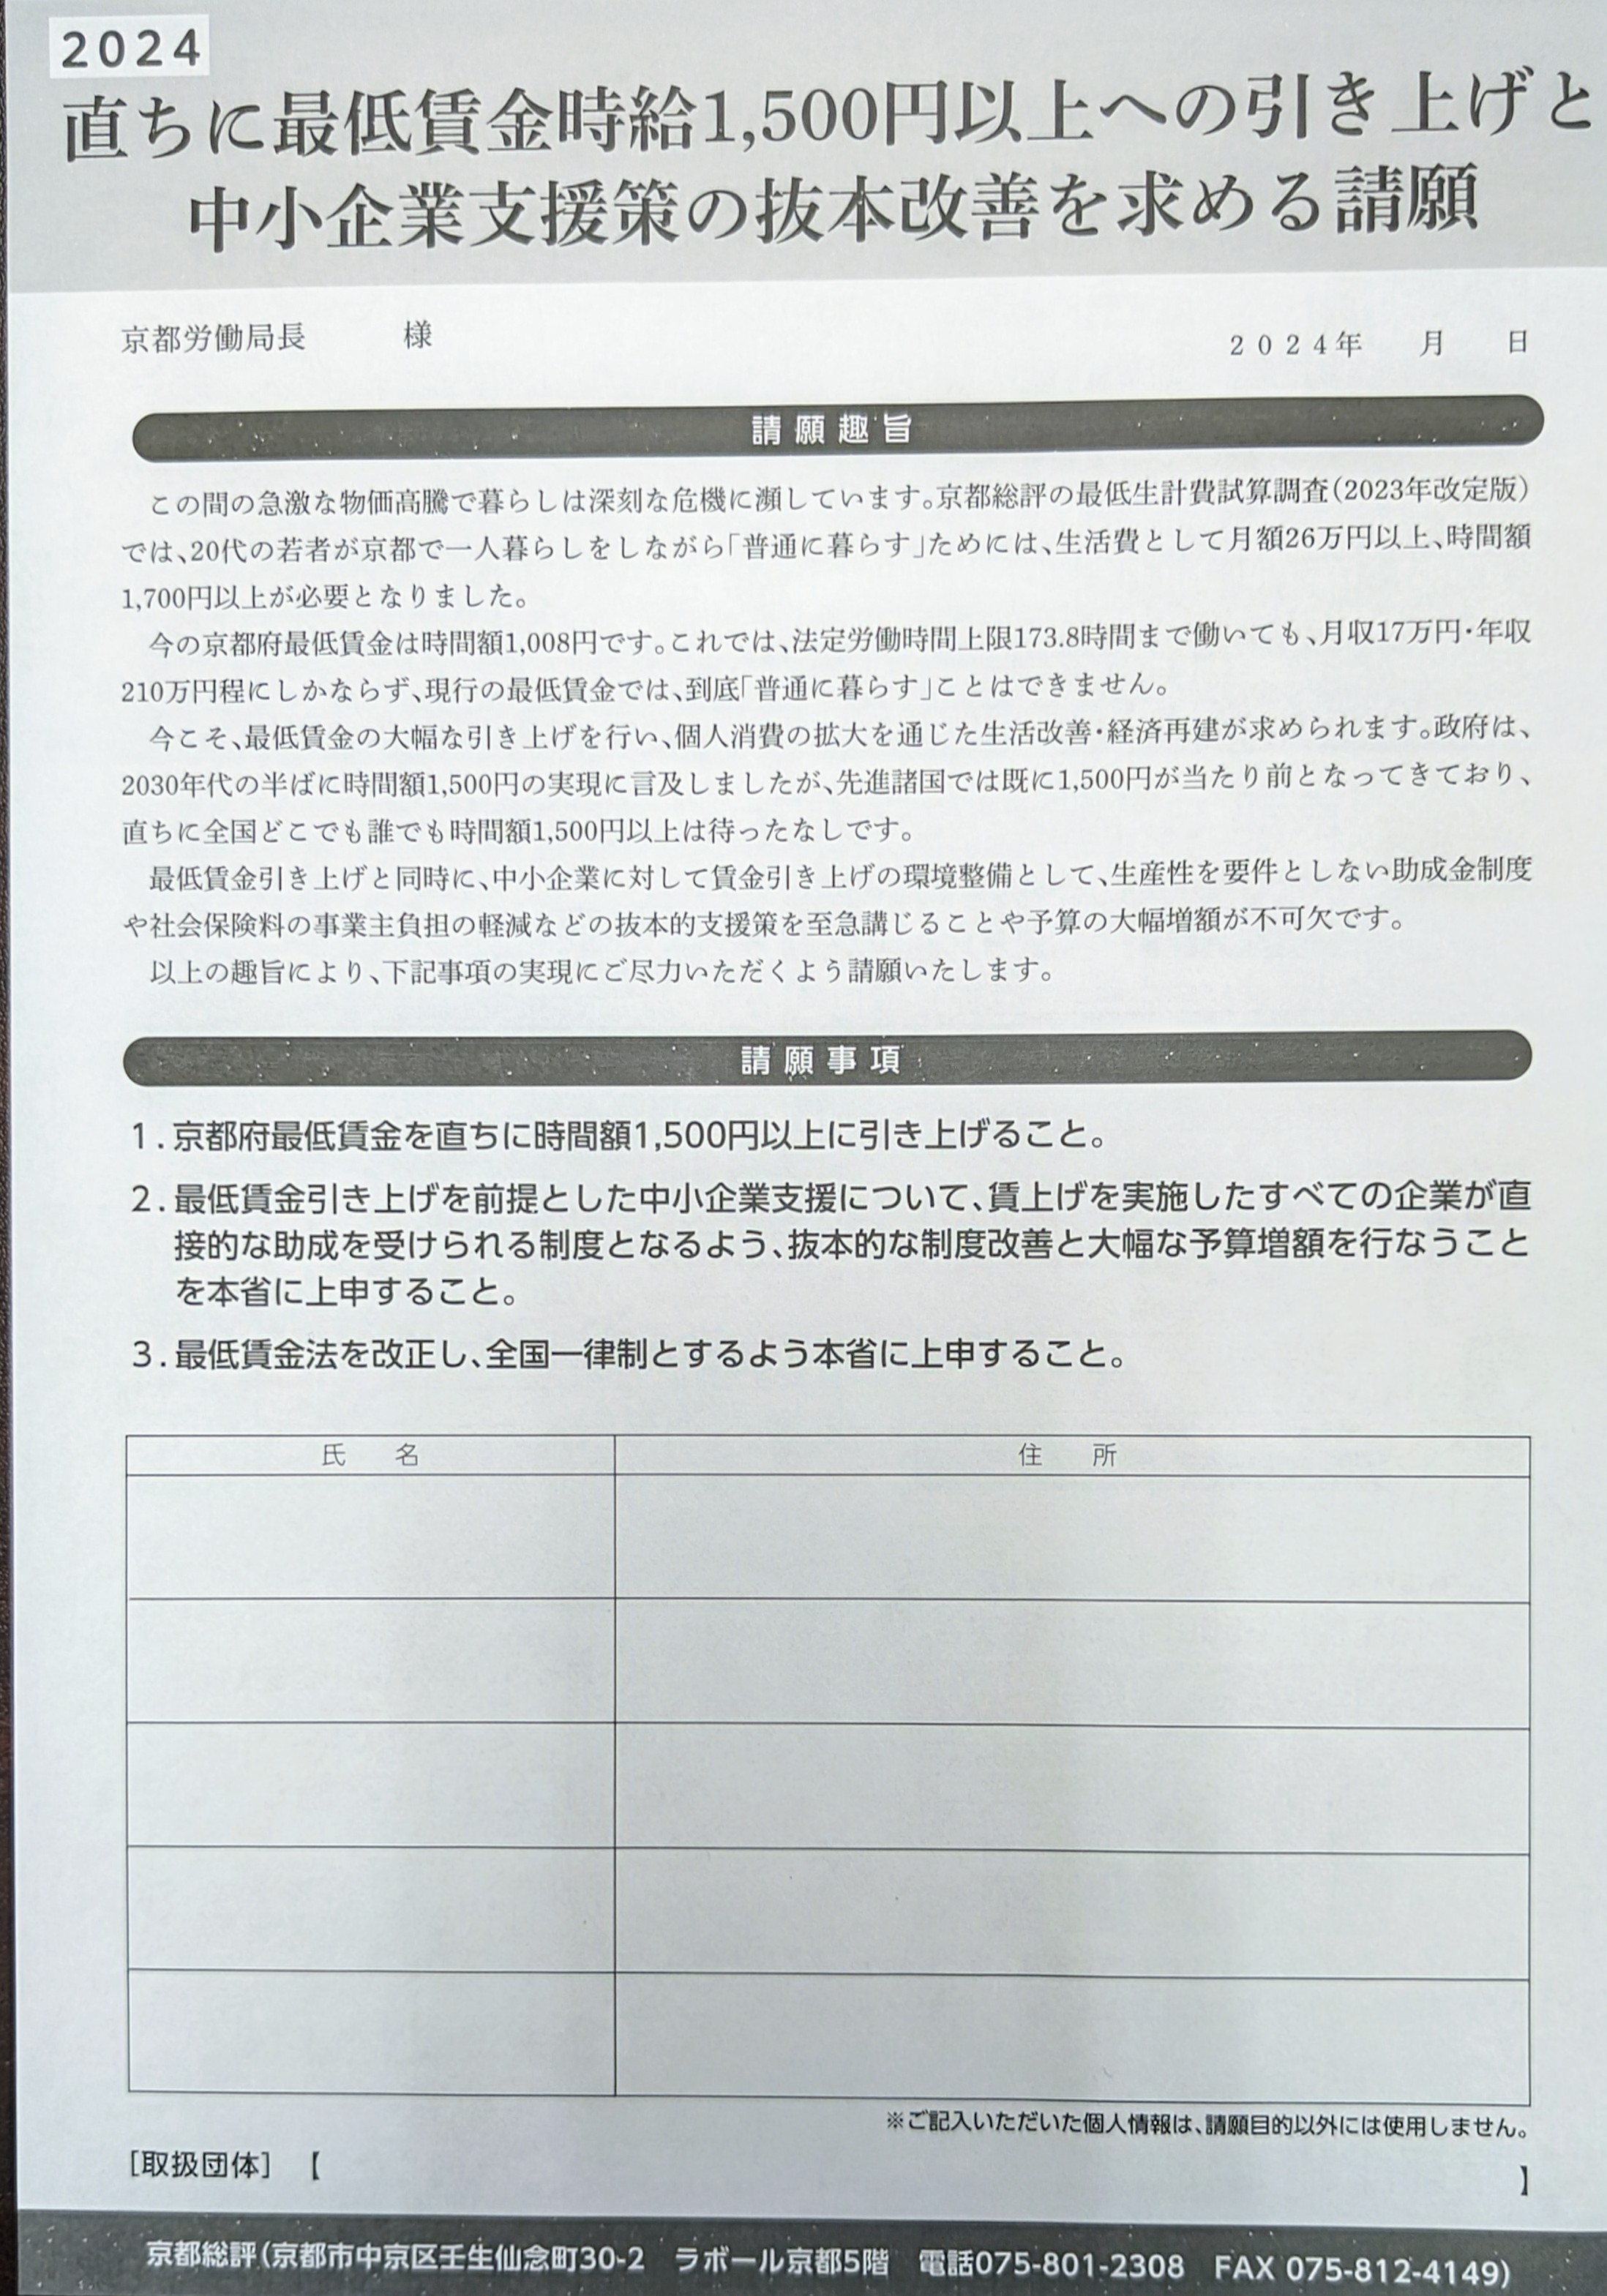 2024
直ちに最低賃金時給1,500円以上への引き上げと
中小企業支援策の抜本改善を求める請願
京都労働局長　　　様
2024年　　月　　日
請願趣旨
この間の急激な物価高騰で暮らしは深刻な危機に瀕しています。京都総評の最低生計費試算調査(2023年改定版)
では、20代の若者が京都で一人暮らしをしながら「普通に暮らす」ためには、生活費として月額26万円以上、時間額
1,700円以上が必要となりました。
今の京都府最低賃金は時間額1,008円です。これでは、法定労働時間上限173.8時間まで働いても、月収17万円・年収
210万円程にしかならず、現行の最低賃金では、到底「普通に暮らす」ことはできません。
今こそ、最低賃金の大幅な引き上げを行い、個人消費の拡大を通じた生活改善・経済再建が求められます。政府は、
2030年代の半ばに時間額1,500円の実現に言及しましたが、先進諸国では既に1,500円が当たり前となってきており、
直ちに全国どこでも誰でも時間額1,500円以上は待ったなしです。
最低賃金引き上げと同時に、中小企業に対して賃金引き上げの環境整備として、生産性を要件としない助成金制度
や社会保険料の事業主負担の軽減などの抜本的支援策を至急講じることや予算の大幅増額が不可欠です。
以上の趣旨により、下記事項の実現にご尽力いただくよう請願いたします。
請願事項
1.京都府最低賃金を直ちに時間額1,500円以上に引き上げること。
2.最低賃金引き上げを前提とした中小企業支援について、賃上げを実施したすべての企業が直
接的な助成を受けられる制度となるよう、抜本的な制度改善と大幅な予算増額を行なうこと
を本省に上申すること。
3.最低賃金法を改正し、全国一律制とするよう本省に上申すること。
氏　名　　　住　所
※ご記入いただいた個人情報は、請願目的以外には使用しません。
[取扱団体]　【　　　】
京都総評(京都市中京区壬生仙念町30-2　ラボール京都5階　電話075-801-2308　FAX 075-812-4149)